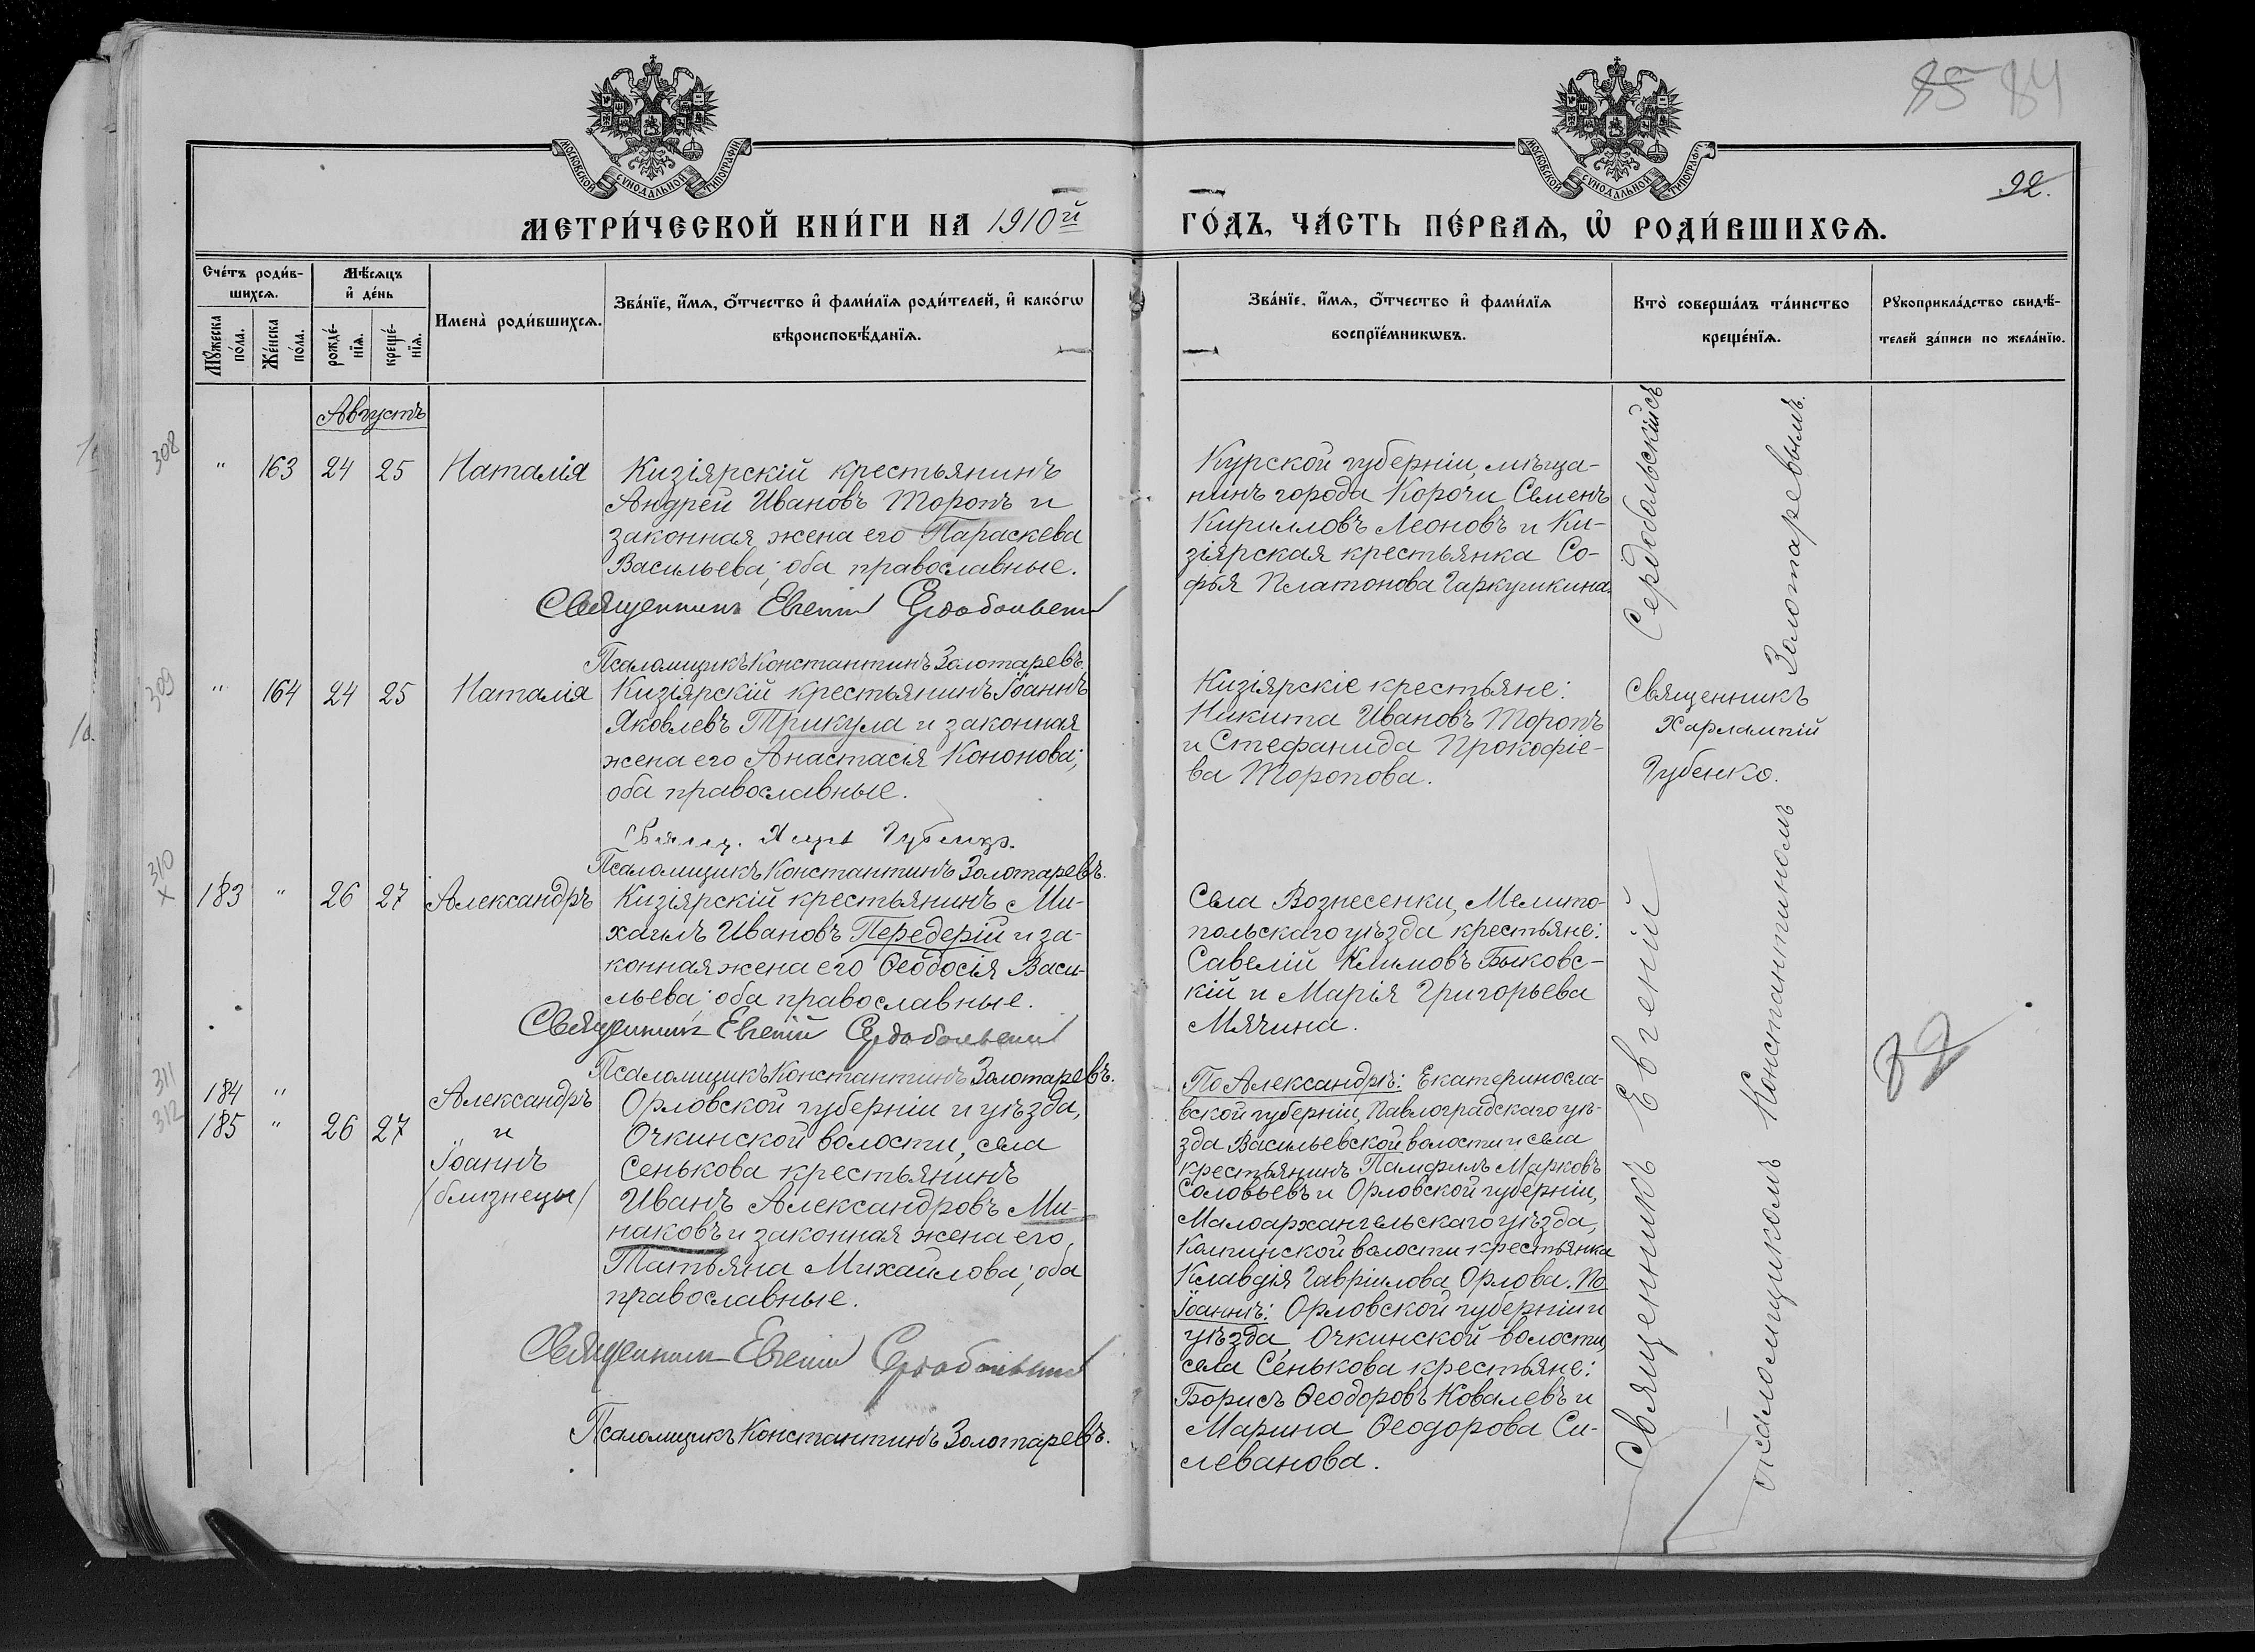 85 84
МОСКОВСКОЙ СѴНОДАЛЬНОЙ ТИПОГРАФІИ
МОСКОВСКОЙ СѴНОДАЛЬНОЙ ТИПОГРАФІИ
22.
МЕТРИ́ЧЕСКОЙ КНИ́ГИ НА 1910й
ГО́ДЪ, ЧА́СТЬ ПЕ́РВАѦ, Ѡ҆ РОДИ́ВШИХСѦ.
Сче́тъ роди́в-
шихсѧ.
Мꙋ́жеска по́ла.
Же́нска по́ла.
Мѣ́сѧцъ
и҆ де́нь
рожде́-
нїѧ.
креще́-
нїѧ.
Имена̀ роди́вшихсѧ.
Зва́нїе, и҆́мѧ, о҆́тчество и҆ фами́лїѧ роди́телей, и҆ како́гѡ
вѣроисповѣ́данїѧ.
Зва́нїе, и҆́мѧ, о҆́тчество и҆ фами́лїѧ
воспрїе́мникѡвъ.
Кто̀ соверша́лъ та́инство
креще́нїѧ.
Рꙋкоприкла́дство свидѣ́-
телей за́писи по жела́нїю.
Августъ
308
" 163 24 25 Наталія
Кизіярскій крестьянинъ
Андрей Ивановъ Торопъ и
законная жена его Параскева
Васильева; оба православные.
Священникъ Евгеній Сердобольскій
Псаломщикъ Константинъ Золотаревъ.
Курской губерніи, мѣща-
нинъ города Корочи Семенъ
Кирилловъ Леоновъ и Ки-
зіярская крестьянка Со-
фья Платонова Гаркушкина.
309
" 164 24 25 Наталія
Кизіярскій крестьянинъ Іоаннъ
Яковлевъ Трикула и законная
жена его Анастасія Кононова;
оба православные.
Свящ. Харл. Губенко.
Псаломщикъ Константинъ Золотаревъ.
Кизіярскіе крестьяне:
Никита Ивановъ Торопъ
и Стефанида Прокофіе-
ва Торопова.
Священникъ
Харлампій
Губенко.
310
×
183 " 26 27 Александръ
Кизіярскій крестьянинъ Ми-
хаилъ Ивановъ Передерій и за-
конная жена его Ѳеодосія Васи-
льева; оба православные.
Священникъ Евгеній Сердобольскій
Псаломщикъ Константинъ Золотаревъ.
Села Вознесенки, Мелито-
польскаго уѣзда крестьяне:
Савелій Климовъ Быковс-
кій и Марія Григорьева
Мячина.
311
312
184 "
185 " 26 27
Александръ
и
Іоаннъ
/близнецы/
Орловской губерніи и уѣзда,
Очкинской волости, села
Сенькова крестьянинъ
Иванъ Александровъ Ми-
наковъ и законная жена его
Татьяна Михайлова; оба
православные.
Священникъ Евгеній Сердобольскій
Псаломщикъ Константинъ Золотаревъ.
По Александрѣ: Екатериносла-
вской губерніи, Павлоградскаго уѣ-
зда Васильевской волости и села
крестьянинъ Памфилъ Марковъ
Соловьевъ и Орловской губерніи,
Малоархангельскаго уѣзда,
волости крестьянка
Клавдія Гавріилова Орлова. По
Іоаннѣ: Орловской губерніи и
уѣзда, Очкинской волости
села Сенькова крестьяне:
Борисъ Ѳеодоровъ Ковалевъ и
Марина Ѳеодорова Си-
леванова.
Священникъ Евгеній Сердобольскій съ
псаломщикомъ Константиномъ Золотаревымъ.